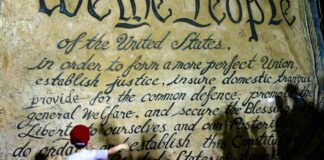 We the People
of the United States,
in order to form a more perfect Union,
establish justice, insure domestic tranqui
provide for the common defence, promote the
general Welfare, and secure the Blessing
Liberty to ourselves and our Posterity
do ordain and establish this Constitu
States